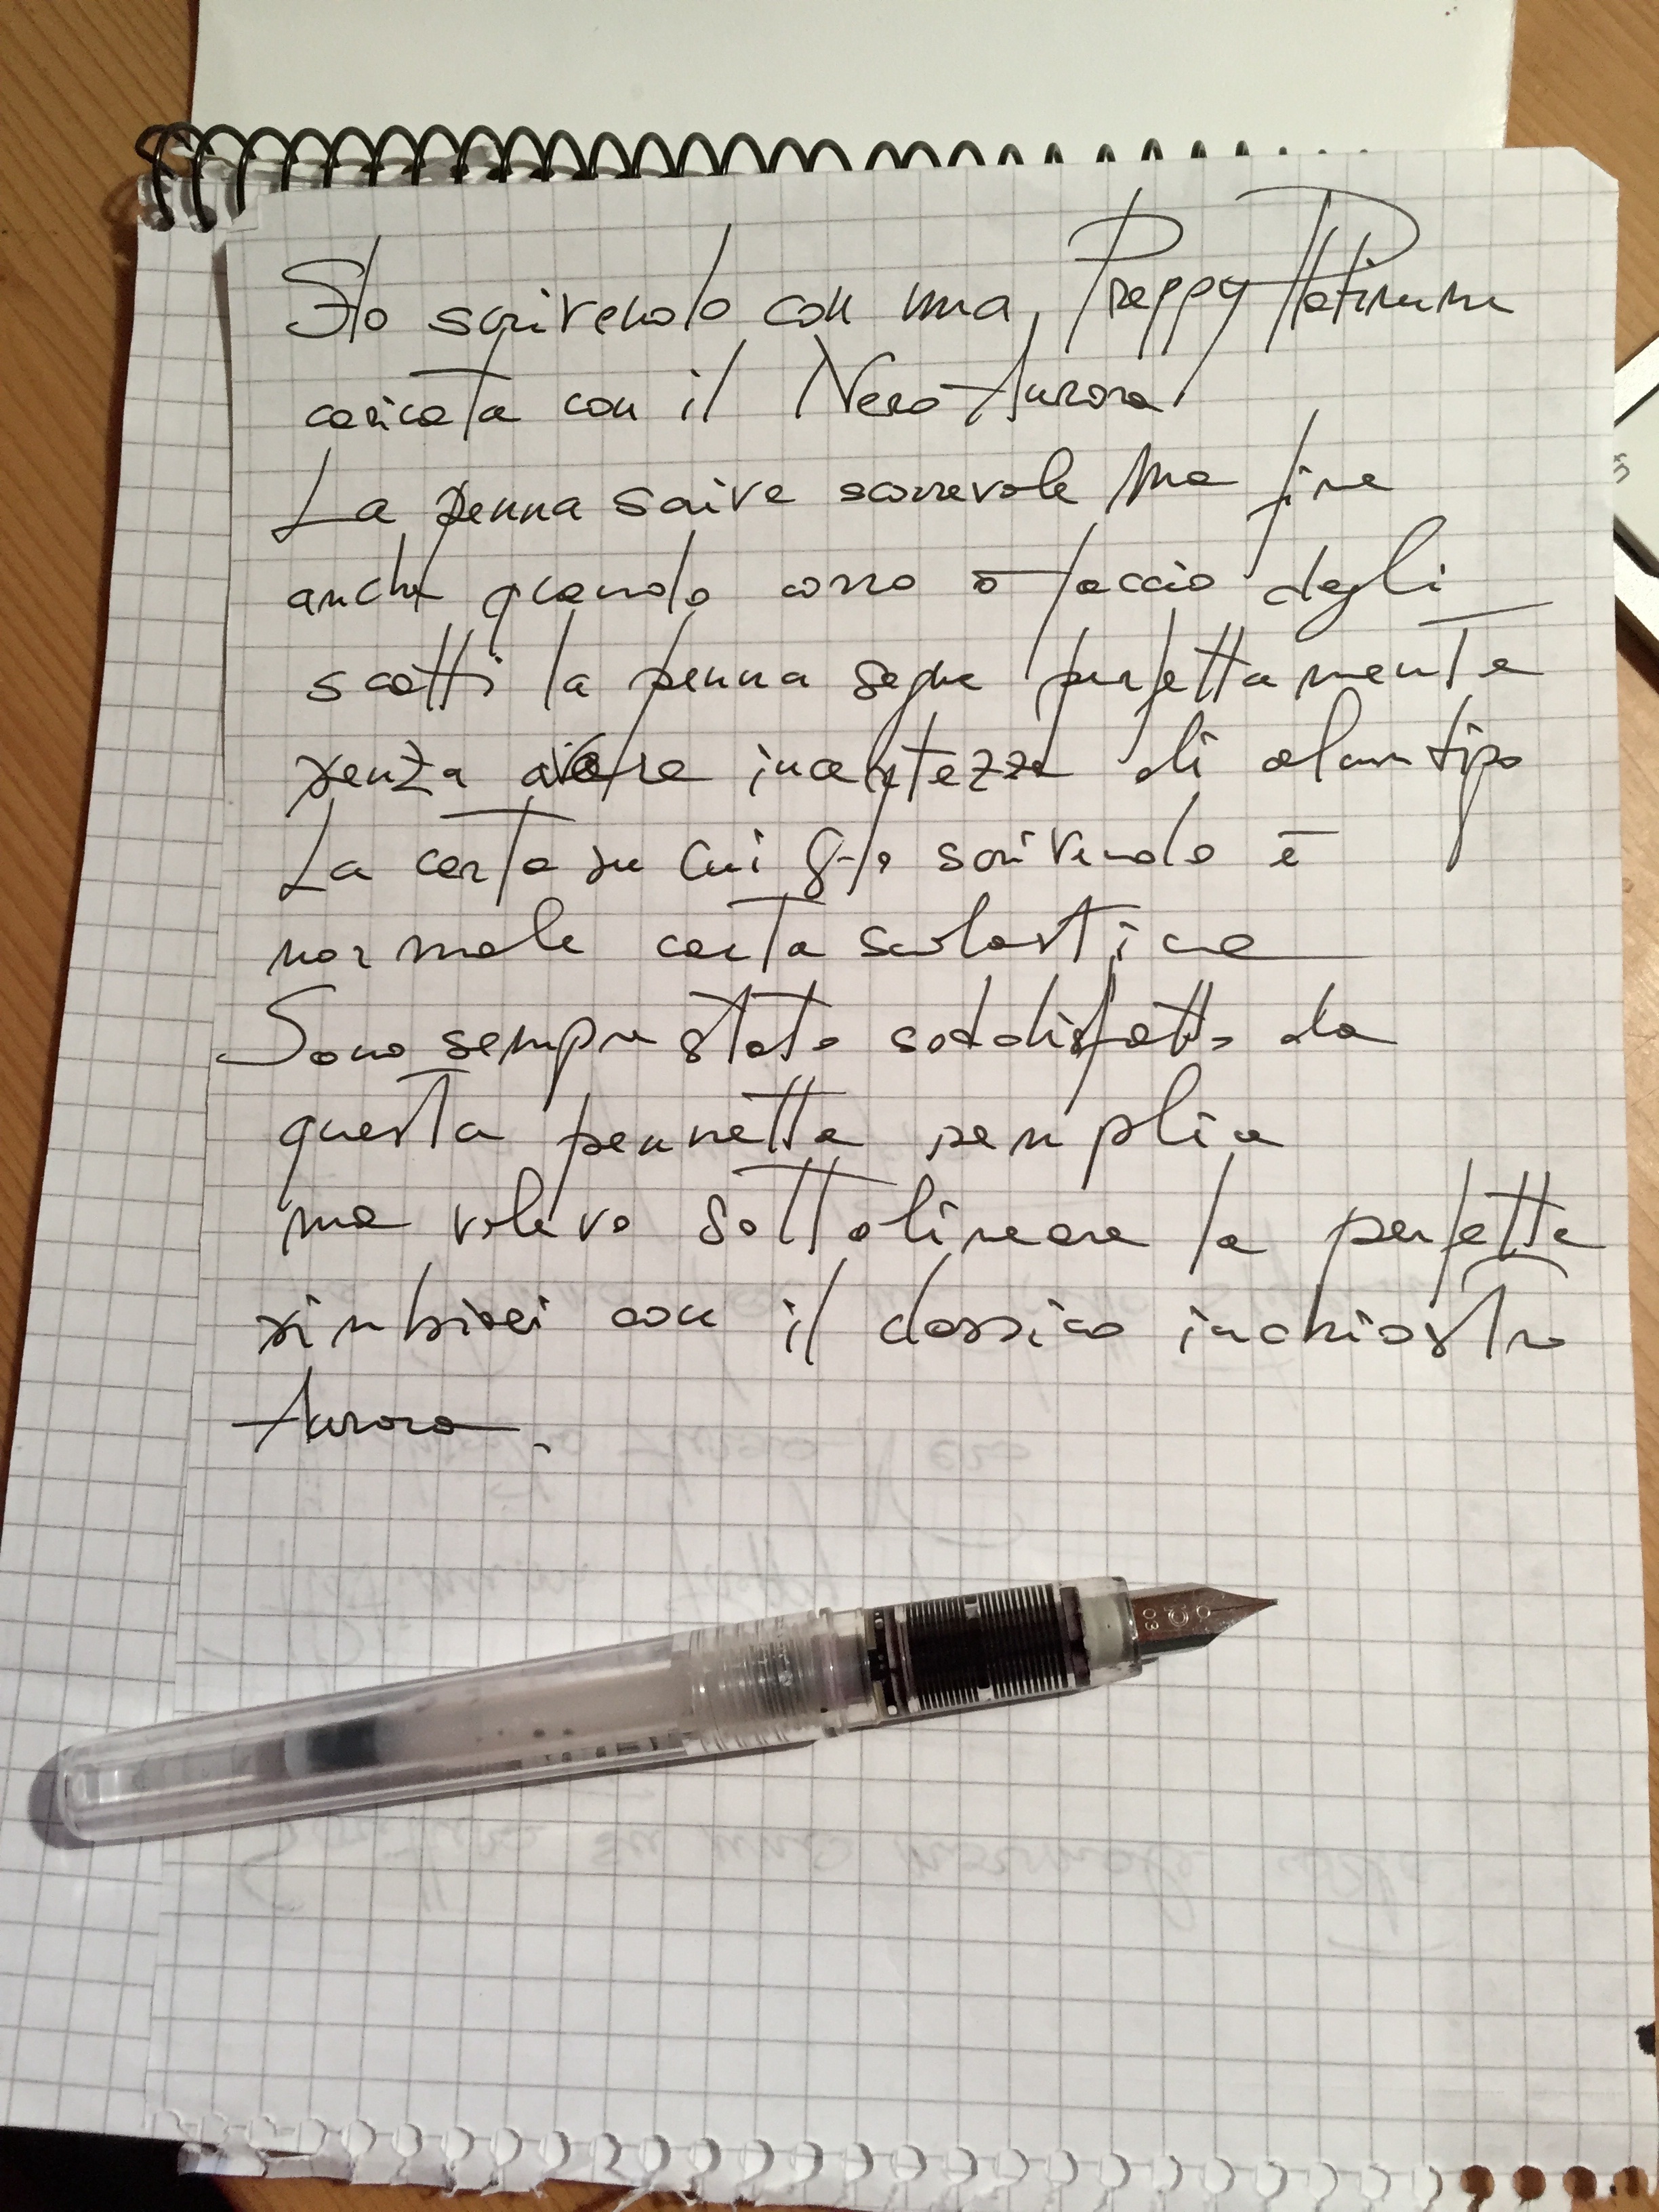 Sto scrivendo con una Preppy Platinum
caricata con il Nero Aurora
La penna scrive scorrevole ma fine
anche quando corro o faccio degli
scatti la penna segue perfettamente
senza avere incertezze di alcun tipo
La carta su cui sto scrivendo è
normale carta scolastica
Sono sempre stato soddisfatto da
questa pennetta semplice
ma volevo sottolineare la perfetta
simbiosi con il classico inchiostro
Aurora.
03